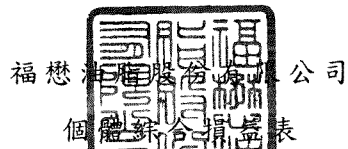 福懋油脂股份有限公司
個體綜合損益表